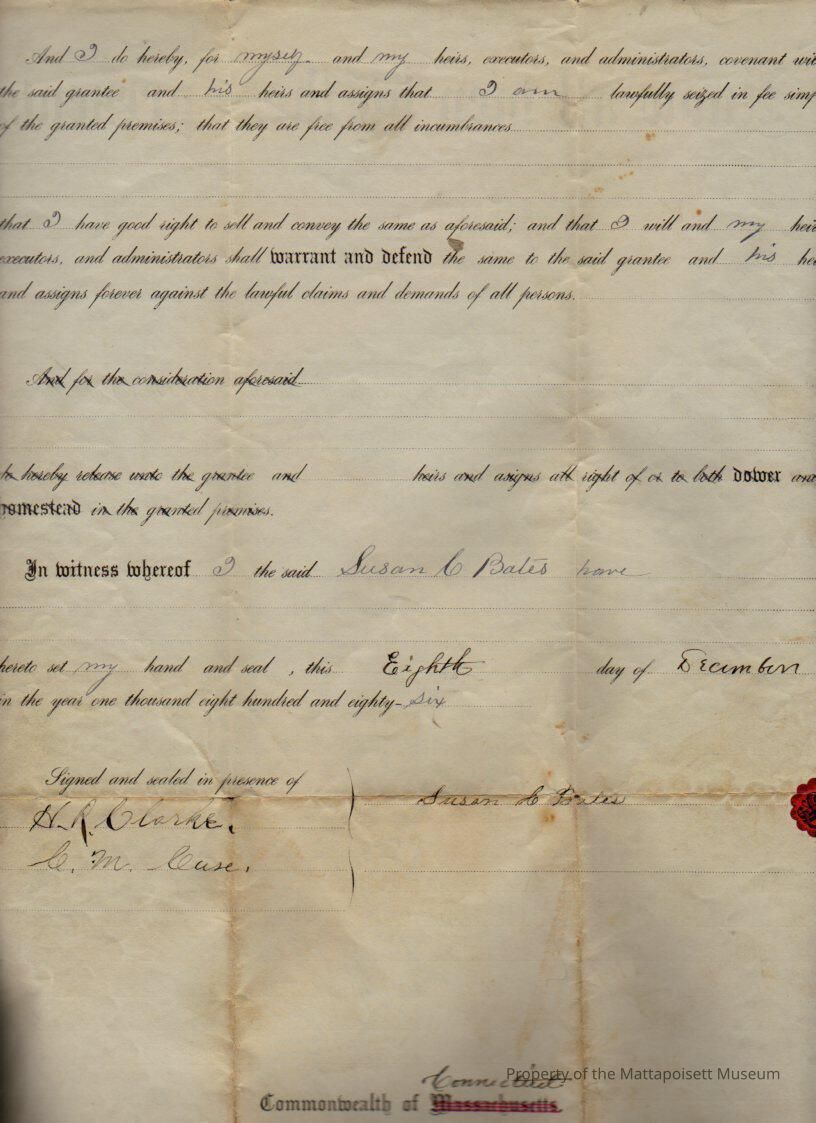 And I do hereby, for myself and my heirs, executors, and administrators, covenant wit
the said grantee and his heirs and assigns that I am lawfully seized in fee simp
of the granted premises; that they are free from all incumbrances
that I have good right to sell and convey the same as aforesaid; and that I will and my heir
executors, and administrators shall warrant and defend the same to the said grantee and his hei
and assigns forever against the lawful claims and demands of all persons.
And for the consideration aforesaid
do hereby release unto the grantee and heirs and asigns all right of or to both dower and
homestead in the granted premises.
In witness whereof I the said Susan C Bates have
hereto set my hand and seal, this Eighth day of December
in the year one thousand eight hundred and eighty-six
Signed and sealed in presence of
H. R. Clarke.
Susan C Bates
C. M. Case.
Property of the Mattapoisett Museum
Connecticut
Commonwealth of Massachusetts.